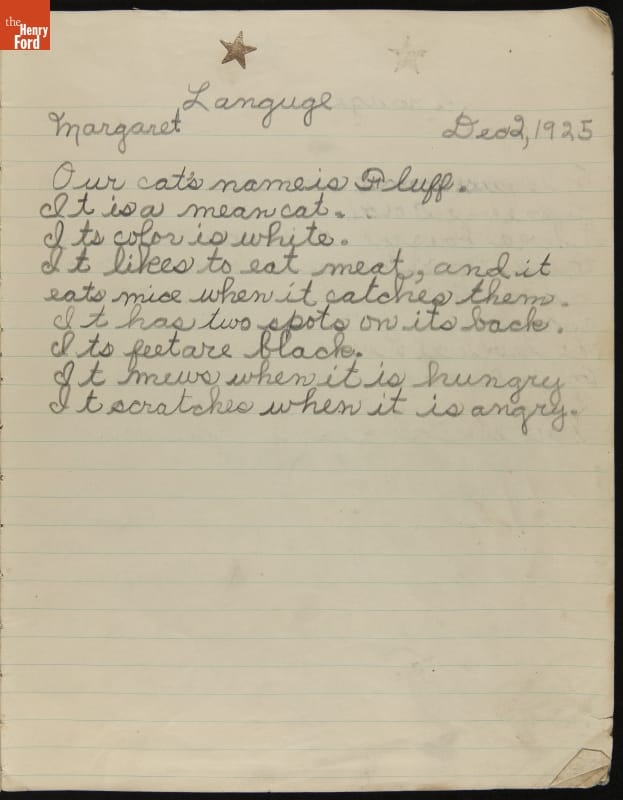 the
Henry
Ford
Languge
Margaret Dec 2, 1925
Our cat's name is Fluff.
It is a mean cat.
Its color is white.
It likes to eat meat, and it
eats mice when it catches them.
It has two spots on its back.
Its feet are black.
It mews when it is hungry
It scratches when it is angry.